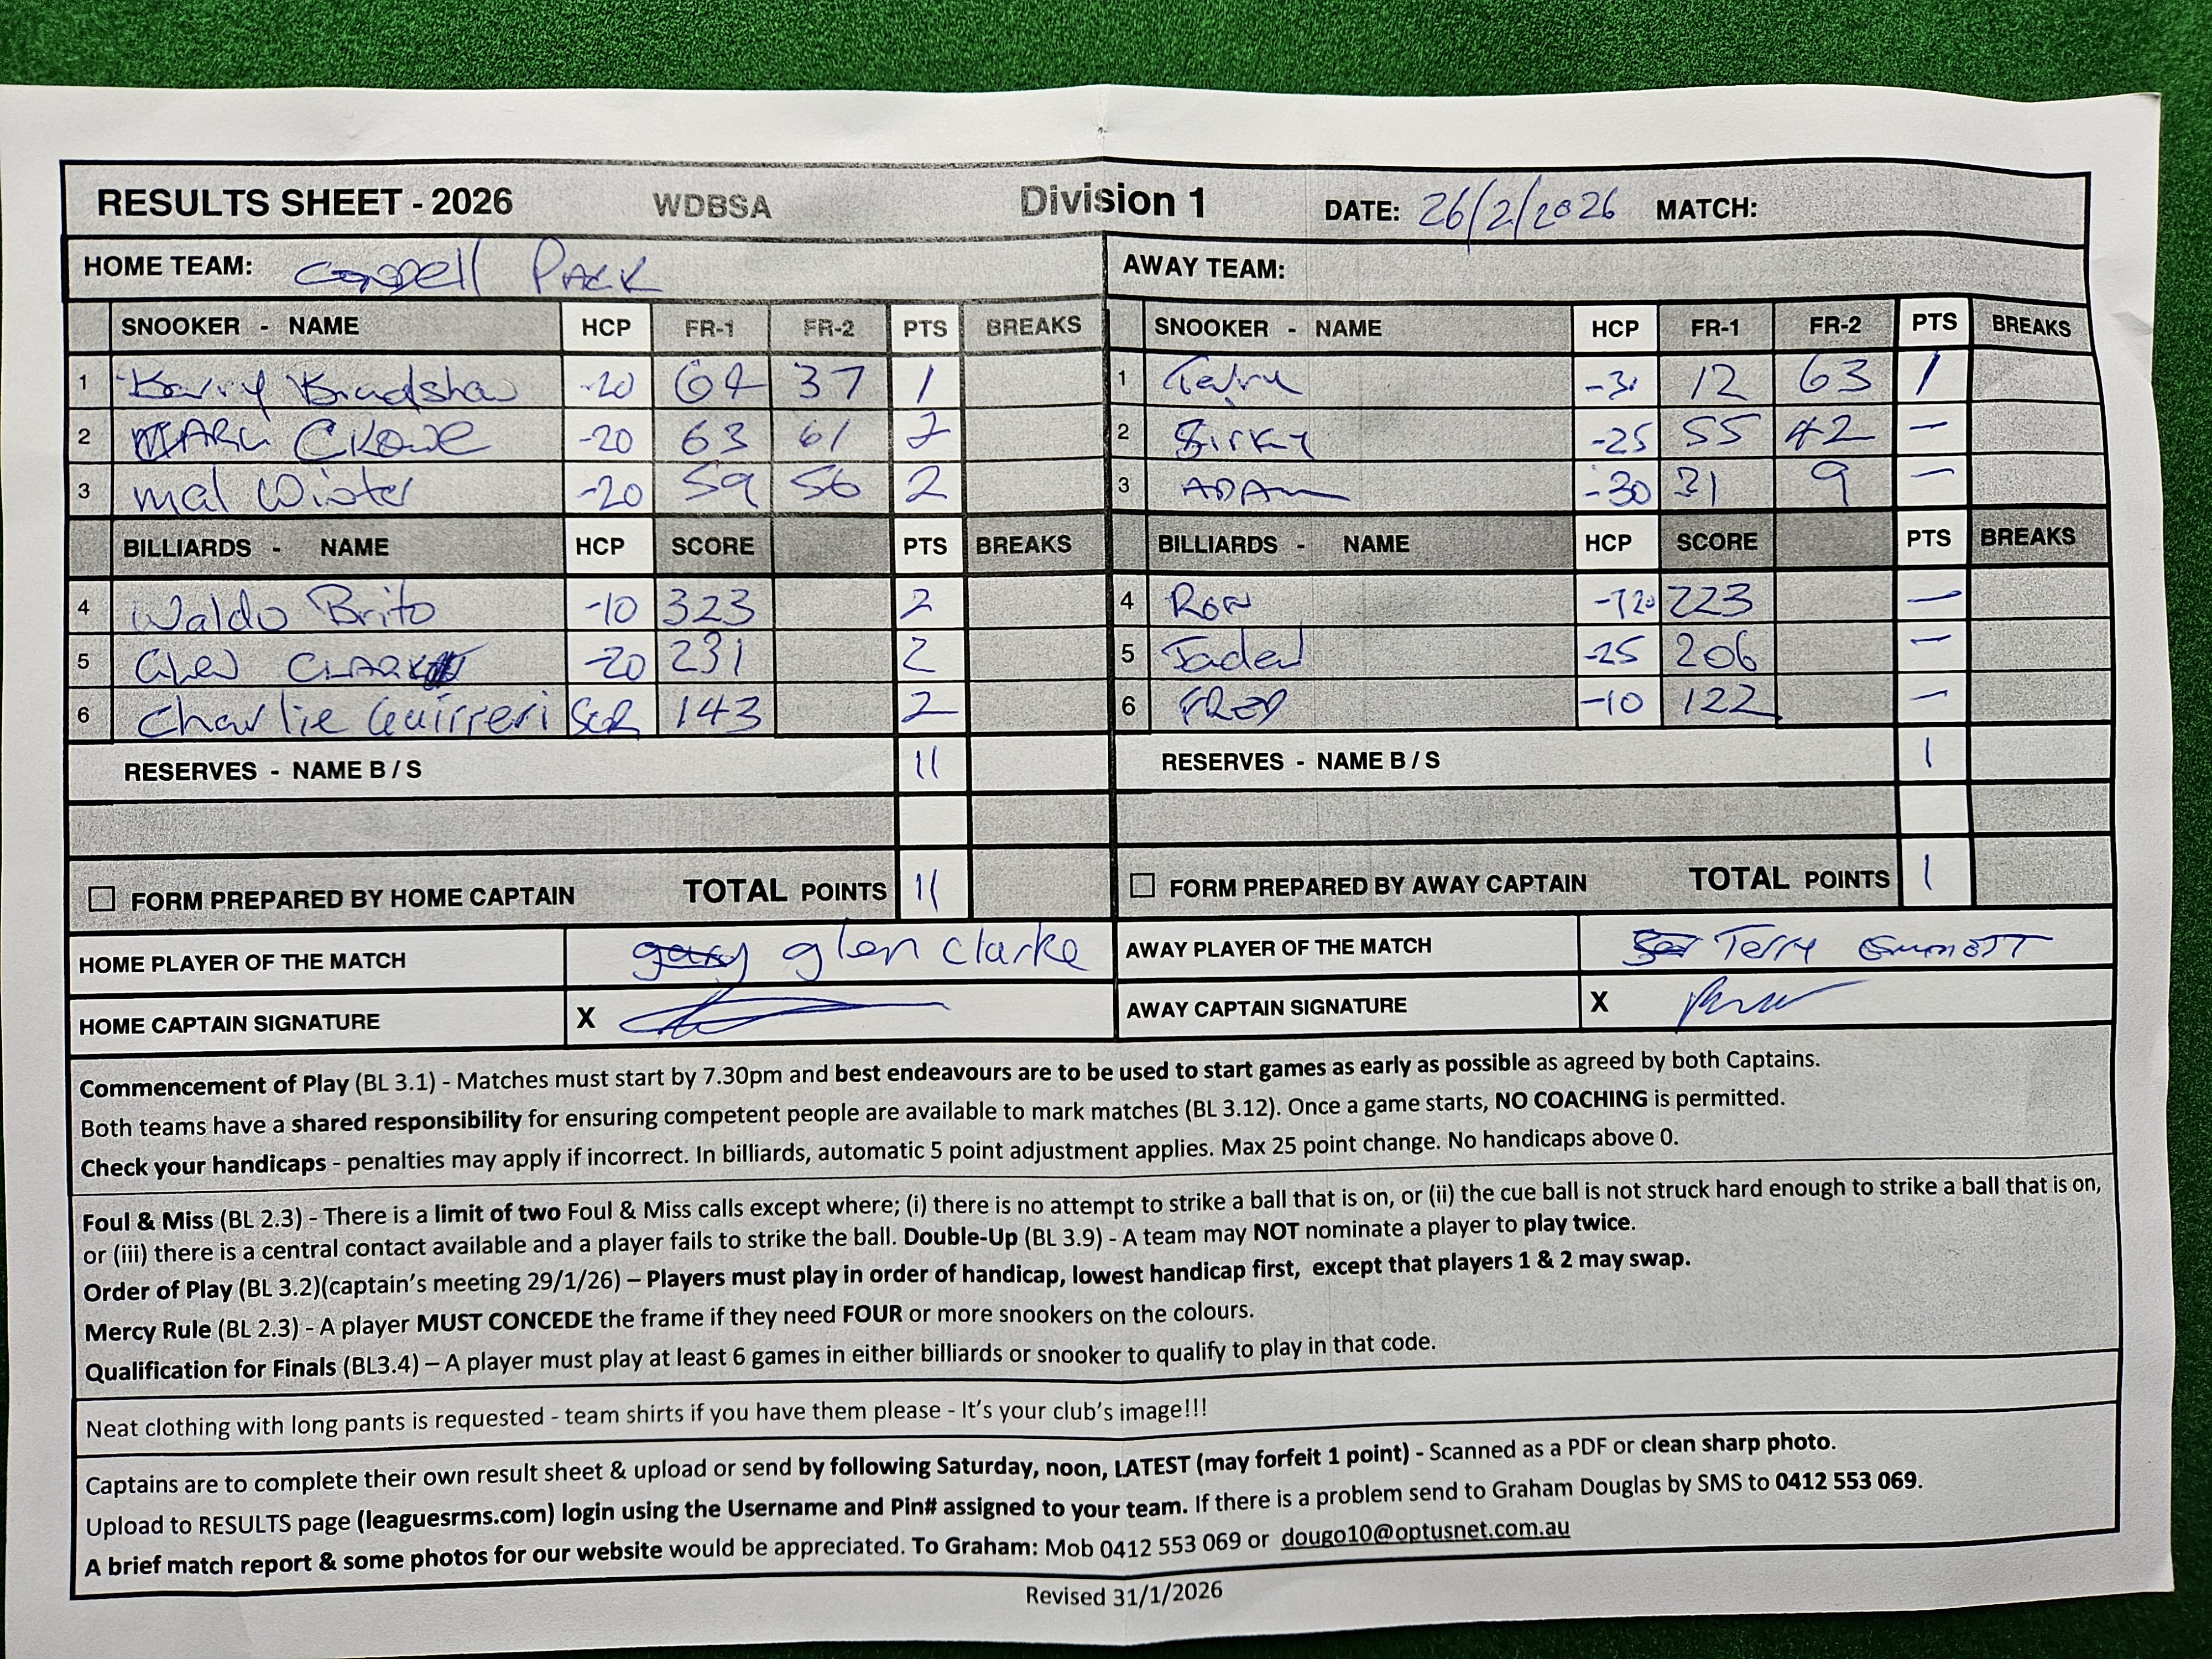 RESULTS SHEET - 2026 WDBSA Division 1 DATE: 26/2/2026 MATCH:
HOME TEAM: Park AWAY TEAM:
SNOOKER - NAME HCP FR-1 FR-2 PTS BREAKS SNOOKER - NAME HCP FR-1 FR-2 PTS BREAKS
1 Bradshaw -20 64 37 1 1 12 63 1
2 MARC CROWE -20 63 61 2 2 -25 55 42 —
3 mal Winter -20 59 56 2 3 ADAM -30 31 9 —
BILLIARDS - NAME HCP SCORE PTS BREAKS BILLIARDS - NAME HCP SCORE PTS BREAKS
4 Waldo Brito -10 323 2 4 RON 223 —
5 Glen CLARK -20 231 2 5 Jaden -25 206 —
6 Charlie Guirreri SCR 143 2 6 FRED -10 122 —
RESERVES - NAME B / S 11 RESERVES - NAME B / S 1
FORM PREPARED BY HOME CAPTAIN TOTAL POINTS 11 FORM PREPARED BY AWAY CAPTAIN TOTAL POINTS 1
HOME PLAYER OF THE MATCH glen clarke AWAY PLAYER OF THE MATCH Terry Emmett
HOME CAPTAIN SIGNATURE X AWAY CAPTAIN SIGNATURE X
Commencement of Play (BL 3.1) - Matches must start by 7.30pm and best endeavours are to be used to start games as early as possible as agreed by both Captains.
Both teams have a shared responsibility for ensuring competent people are available to mark matches (BL 3.12). Once a game starts, NO COACHING is permitted.
Check your handicaps - penalties may apply if incorrect. In billiards, automatic 5 point adjustment applies. Max 25 point change. No handicaps above 0.
Foul & Miss (BL 2.3) - There is a limit of two Foul & Miss calls except where; (i) there is no attempt to strike a ball that is on, or (ii) the cue ball is not struck hard enough to strike a ball that is on,
or (iii) there is a central contact available and a player fails to strike the ball. Double-Up (BL 3.9) - A team may NOT nominate a player to play twice.
Order of Play (BL 3.2)(captain's meeting 29/1/26) – Players must play in order of handicap, lowest handicap first, except that players 1 & 2 may swap.
Mercy Rule (BL 2.3) - A player MUST CONCEDE the frame if they need FOUR or more snookers on the colours.
Qualification for Finals (BL3.4) – A player must play at least 6 games in either billiards or snooker to qualify to play in that code.
Neat clothing with long pants is requested - team shirts if you have them please - It's your club's image!!!
Captains are to complete their own result sheet & upload or send by following Saturday, noon, LATEST (may forfeit 1 point) - Scanned as a PDF or clean sharp photo.
Upload to RESULTS page (leaguesrms.com) login using the Username and Pin# assigned to your team. If there is a problem send to Graham Douglas by SMS to 0412 553 069.
A brief match report & some photos for our website would be appreciated. To Graham: Mob 0412 553 069 or dougo10@optusnet.com.au
Revised 31/1/2026